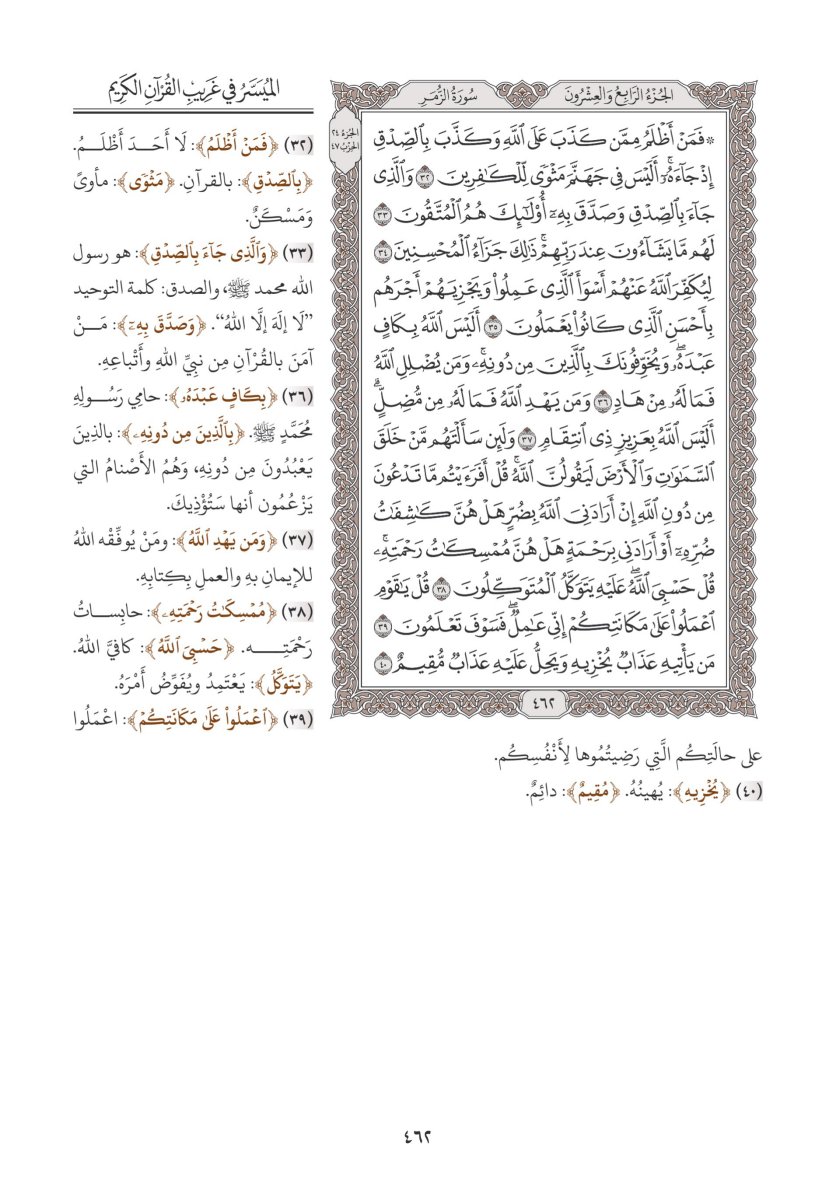 الجُزْءُ الرَّابِعُ وَالعِشْرُونَ
سُورَةُ الزُّمَرِ
الجزء ٢٤
الحزب ٤٧
۞ فَمَنۡ أَظۡلَمُ مِمَّن كَذَبَ عَلَى ٱللَّهِ وَكَذَّبَ بِٱلصِّدۡقِ
إِذۡ جَآءَهُۥٓۚ أَلَيۡسَ فِي جَهَنَّمَ مَثۡوٗى لِّلۡكَٰفِرِينَ ٣٢ وَٱلَّذِي
جَآءَ بِٱلصِّدۡقِ وَصَدَّقَ بِهِۦٓ أُوْلَٰٓئِكَ هُمُ ٱلۡمُتَّقُونَ ٣٣
لَهُم مَّا يَشَآءُونَ عِندَ رَبِّهِمۡۚ ذَٰلِكَ جَزَآءُ ٱلۡمُحۡسِنِينَ ٣٤
لِيُكَفِّرَ ٱللَّهُ عَنۡهُمۡ أَسۡوَأَ ٱلَّذِي عَمِلُواْ وَيَجۡزِيَهُمۡ أَجۡرَهُم
بِأَحۡسَنِ ٱلَّذِي كَانُواْ يَعۡمَلُونَ ٣٥ أَلَيۡسَ ٱللَّهُ بِكَافٍ
عَبۡدَهُۥۖ وَيُخَوِّفُونَكَ بِٱلَّذِينَ مِن دُونِهِۦۚ وَمَن يُضۡلِلِ ٱللَّهُ
فَمَا لَهُۥ مِنۡ هَادٖ ٣٦ وَمَن يَهۡدِ ٱللَّهُ فَمَا لَهُۥ مِن مُّضِلٍّۗ
أَلَيۡسَ ٱللَّهُ بِعَزِيزٖ ذِي ٱنتِقَامٖ ٣٧ وَلَئِن سَأَلۡتَهُم مَّنۡ خَلَقَ
ٱلسَّمَٰوَٰتِ وَٱلۡأَرۡضَ لَيَقُولُنَّ ٱللَّهُۚ قُلۡ أَفَرَءَيۡتُم مَّا تَدۡعُونَ
مِن دُونِ ٱللَّهِ إِنۡ أَرَادَنِيَ ٱللَّهُ بِضُرٍّ هَلۡ هُنَّ كَٰشِفَٰتُ
ضُرِّهِۦٓ أَوۡ أَرَادَنِي بِرَحۡمَةٍ هَلۡ هُنَّ مُمۡسِكَٰتُ رَحۡمَتِهِۦۚ
قُلۡ حَسۡبِيَ ٱللَّهُۖ عَلَيۡهِ يَتَوَكَّلُ ٱلۡمُتَوَكِّلُونَ ٣٨ قُلۡ يَٰقَوۡمِ
ٱعۡمَلُواْ عَلَىٰ مَكَانَتِكُمۡ إِنِّي عَٰمِلٞۖ فَسَوۡفَ تَعۡلَمُونَ ٣٩
مَن يَأۡتِيهِ عَذَابٞ يُخۡزِيهِ وَيَحِلُّ عَلَيۡهِ عَذَابٞ مُّقِيمٌ ٤٠
٤٦٢
الميُسَّرُ في غَرِيبِ القُرْآنِ الكَرِيم
(٣٢) ﴿فَمَنۡ أَظۡلَمُ﴾: لَا أَحَدَ أَظْلَمُ.
﴿بِٱلصِّدۡقِ﴾: بالقرآنِ. ﴿مَثۡوٗى﴾: مأوىً
وَمَسْكَنٌ.
(٣٣) ﴿وَٱلَّذِي جَآءَ بِٱلصِّدۡقِ﴾: هو رسول
الله محمد ﷺ، والصدق: كلمة التوحيد
”لَا إلَهَ إلَّا اللهُ“. ﴿وَصَدَّقَ بِهِۦٓ﴾: مَنْ
آمَنَ بالقُرْآنِ مِن نبيِّ اللهِ وأَتْباعِهِ.
(٣٦) ﴿بِكَافٍ عَبۡدَهُۥ﴾: حامِي رَسُولِهِ
مُحَمَّدٍ ﷺ. ﴿بِٱلَّذِينَ مِن دُونِهِۦ﴾: بالذِينَ
يَعْبُدُونَ مِن دُونِهِ، وَهُمُ الأَصْنامُ التي
يَزْعُمُون أنها سَتُؤْذِيكَ.
(٣٧) ﴿وَمَن يَهۡدِ ٱللَّهُ﴾: ومَنْ يُوفِّقْه اللهُ
للإيمانِ بِهِ والعملِ بِكِتابِهِ.
(٣٨) ﴿مُمۡسِكَٰتُ رَحۡمَتِهِۦ﴾: حابِساتُ
رَحْمَتِهِ. ﴿حَسۡبِيَ ٱللَّهُ﴾: كافِيَّ اللهُ.
﴿يَتَوَكَّلُ﴾: يَعْتَمِدُ ويُفَوِّضُ أَمْرَهُ.
(٣٩) ﴿ٱعۡمَلُواْ عَلَىٰ مَكَانَتِكُمۡ﴾: اعْمَلُوا
على حالَتِكُم الَّتِي رَضِيتُمُوها لِأَنْفُسِكُم.
(٤٠) ﴿يُخۡزِيهِ﴾: يُهينُهُ. ﴿مُقِيمٌ﴾: دائِمٌ.
٤٦٢